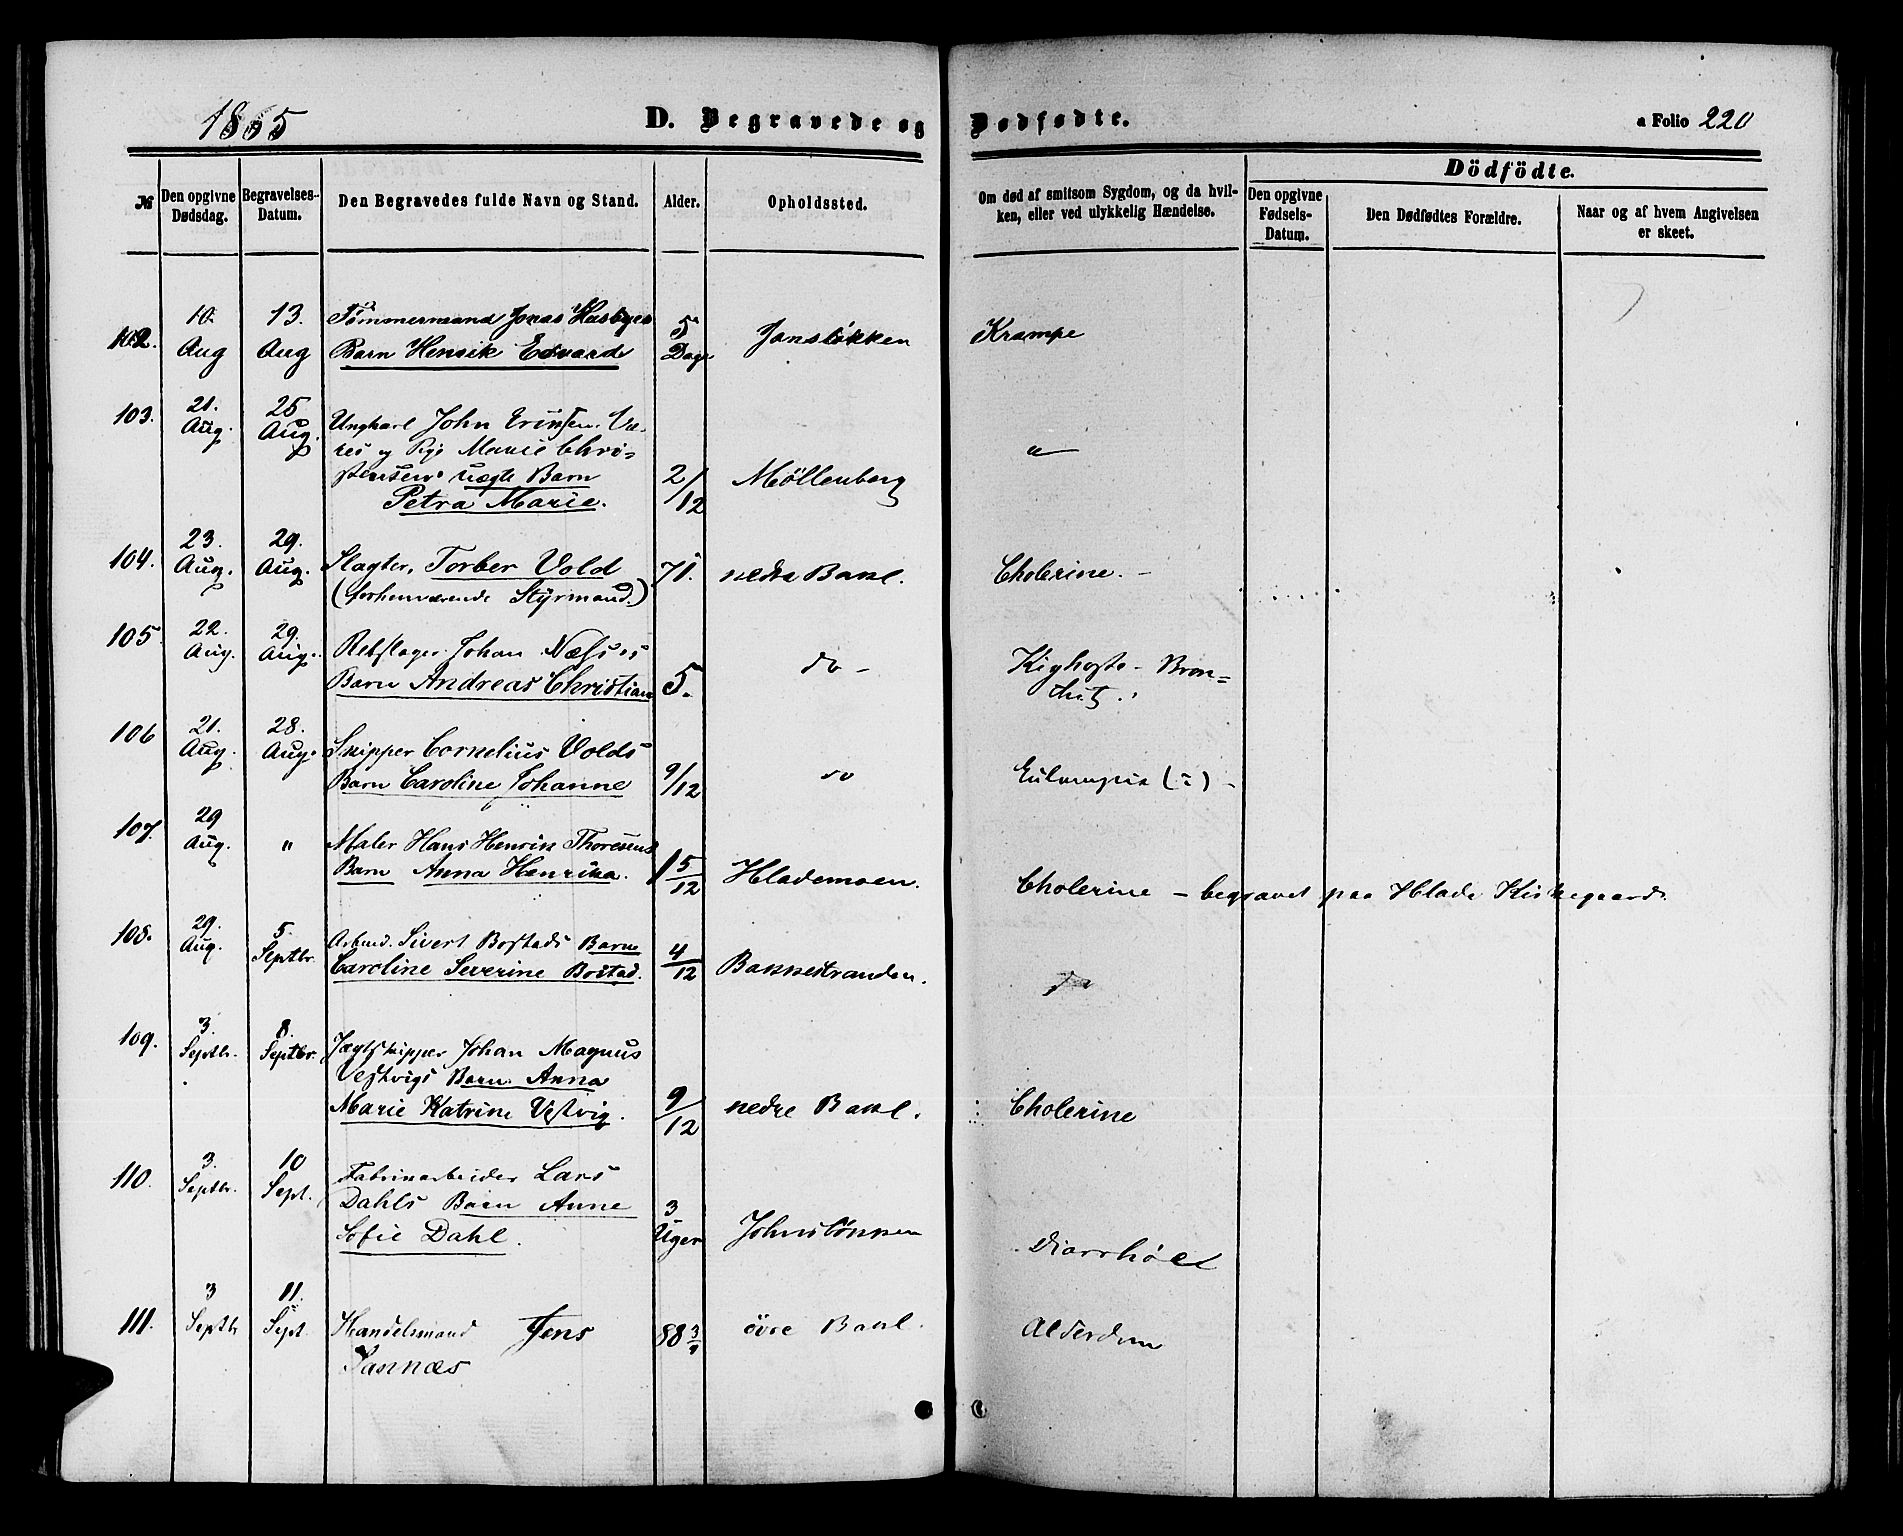 1865
D. Begravede og Dødfødte.
a Folio 220
Dödfödte.
№
Den opgivne Dødsdag.
Begravelses-Datum.
Den Begravedes fulde Navn og Stand.
Alder.
Opholdssted.
Om død af smitsom Sygdom, og da hvil-
ken, eller ved ulykkelig Hændelse.
Den opgivne Fødsels-Datum.
Den Dødfødtes Forældre.
Naar og af hvem Angivelsen
er skeet.
102. 10. Aug 13. Aug Tømmermand Jonas Husbyes
Barn Henrik Edvard 5 Dage Jonsløkken Krampe
103. 21. Aug. 25 Aug. Ungkarl John
og Pige Marie Chri=
stensens uægte Barn
Petra Marie. 2/12 Møllenberg "
104. 23. Aug. 29. Aug. Slagter, Torber Vold 71. nedre Bakl. Cholerine. -
(forhenværende Styrmand.)
105 22. Aug. 29. Aug. Rebslager Johan Næss's
Barn Andreas Christian 5. do - Kighoste - Bron=
chit.
106 21. Aug. 28. Aug. Skipper Cornelius Volds
Barn Caroline Johanne 9/12 do
107. 29 Aug. " Maler Hans Henrik Thoresens
Barn Anna Henrika. 1 5/12 Hlademoen. Cholerine - begravet paa Hlade Kirkegaard.
108. 29. Aug. 5. Septbr. Arbmd. Sivert Bostads Barn
Caroline Severine Bostad. 4/12 Bakkestranden.
109. 3. Septbr. 8. Septbr. Jægtskipper Johan Magnus
Vestvigs Barn Anna
Marie Katrine Vestvig. 9/12 nedre Bakl. Cholerine
110. 3. Septbr. 10 Sept. Fabrikarbeider Lars
Dahls Barn Anne
Sofie Dahl. 3 Uger Johnsløkken Diarrhöe
111. 3 Septbr 11. Sept. Handelsmand Jens
Sannæs 88 3/4 övre Bakl. Alderdom